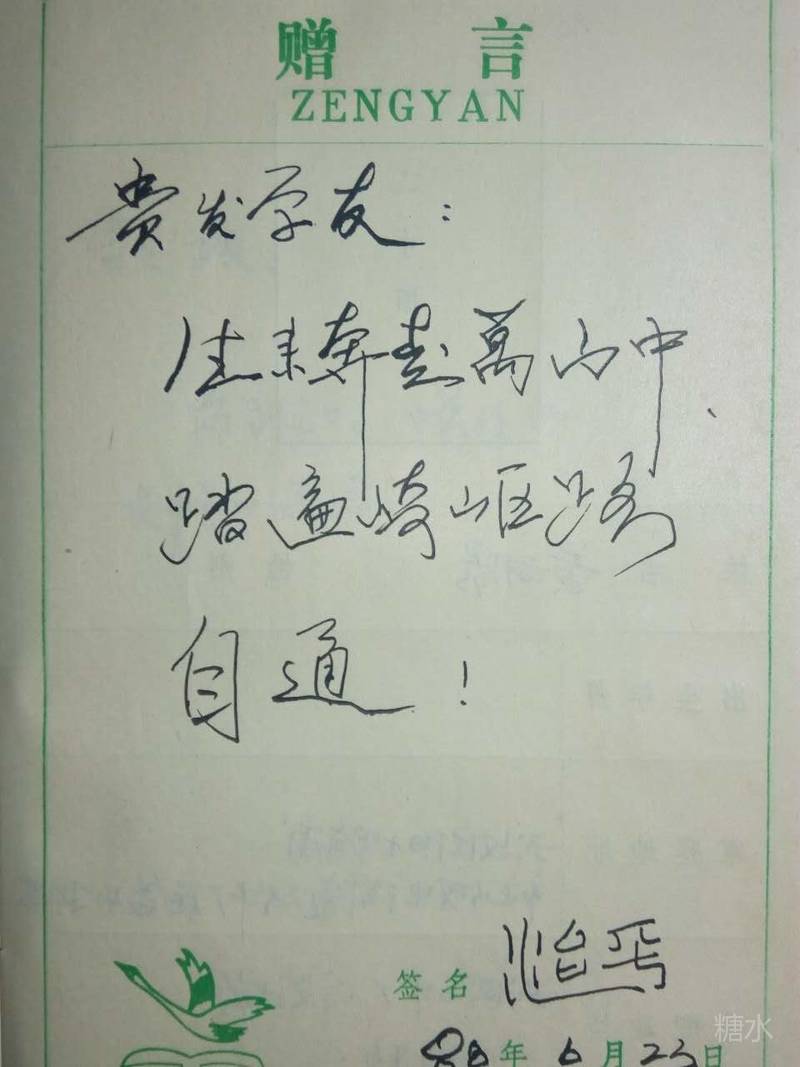 赠言
ZENGYAN
贵发学友：
生来奔走萬山中、
踏遍崎岖路
自通！
签名
年6月23日
糖水